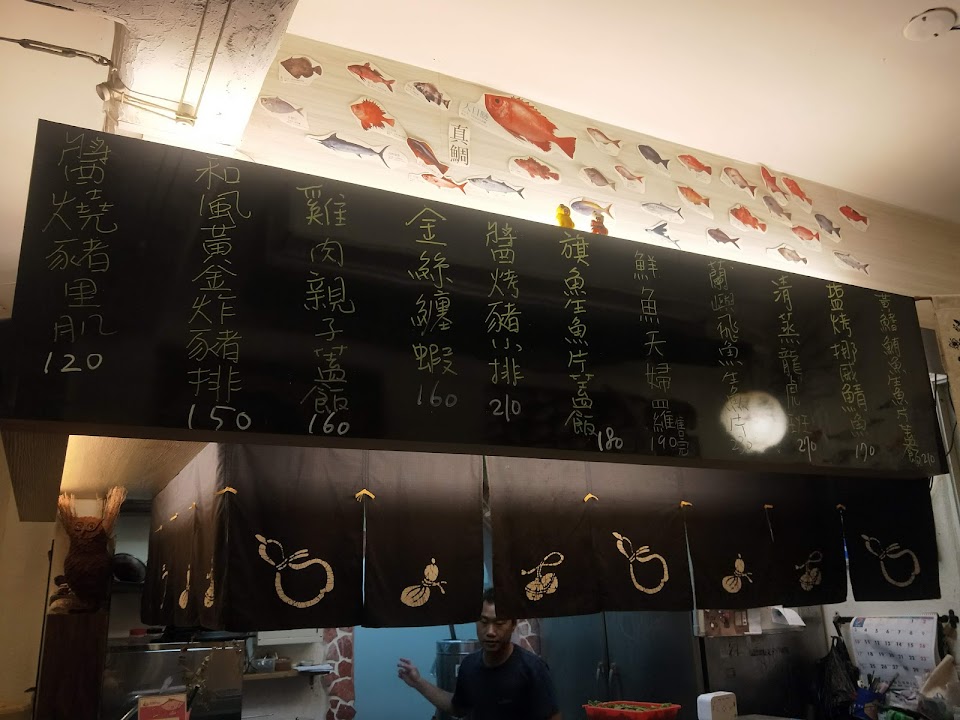 真鯛
醬燒豬里肌
120
和風黃金炸豬排
150
雞肉親子蓋飯
160
金絲纏蝦
160
醬烤豬小排
210
旗魚生魚片蓋飯
180
鮮魚天婦羅
190
蘭嶼飛魚生魚片
清蒸龍虎斑
270
鹽烤挪威鯖魚
170
鯛魚生魚片
210